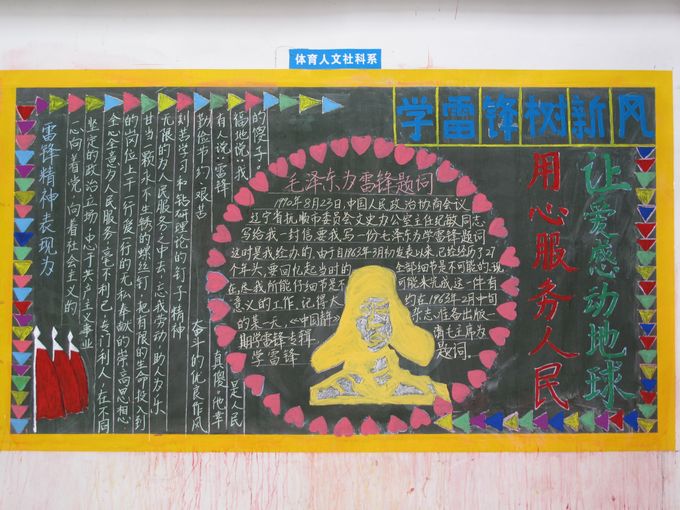 体育人文社科系
学雷锋树新风
让爱感动地球
用心服务人民
雷锋精神表现为
一心向着党 向着社会主义的
坚定的政治立场,忠于共产主义事业
全心全意为人民服务,毫不利己、专门利人,在不同
的岗位上干一行爱一行的无私奉献的崇高思想
甘当一颗永不生锈的螺丝钉,把有限的生命投入到
无限的为人民服务之中去,忘我劳动、助人为乐
刻苦学习和钻研理论的钉子精神
勤俭节约、艰苦 奋斗的优良作风
有人说:雷锋 真傻,他幸
福地说:我 是人民
的傻子
毛泽东为雷锋题词
1990年8月23日,中国人民政治协商会议
辽宁省抚顺市委员会文史办公室主任纪敏同志
写给我一封信,要我写一份毛泽东学雷锋题词
这时是我经办的,由于自1963年3月初发表以来,已经经历了27
个年头,要回忆起当时的 全部细节是不可能的,现
在,尽我所能仔细 可能来完成这一件有
意义的工作,记得大 约在1963年2月中旬
的某一天,《中国青年》 杂志准备出版一
期学雷锋专辑 请毛主席为
学雷锋 题词.